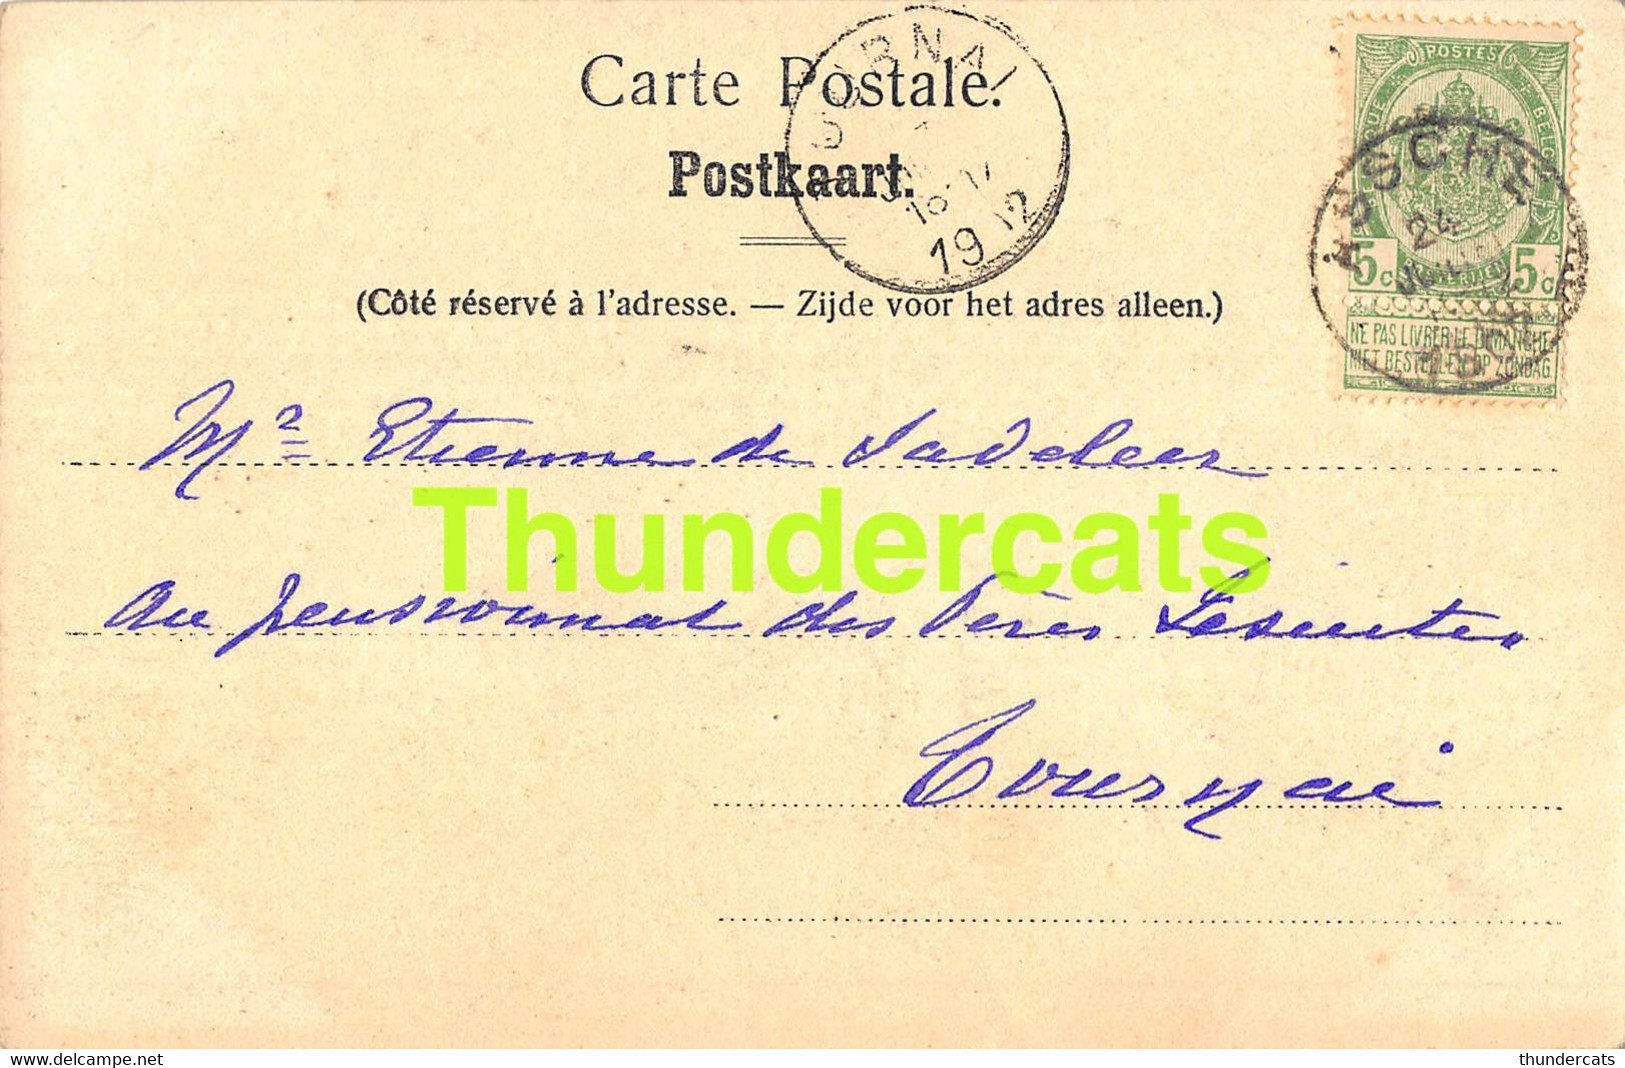 Carte Postale.
Postkaart.
(Côté réservé à l'adresse. — Zijde voor het adres alleen.)
TOURNAI
1902
POSTES
BELGIQUE
ASSCHE
24
5c 5c
POSTERIJEN
NE PAS LIVRER LE DIMANCHE
NIET BESTELLEN OP ZONDAG
Mr Etienne de Sadeleer
Thundercats
au pensionnat des Pères Jésuites
Tournai
delcampe.net
thundercats